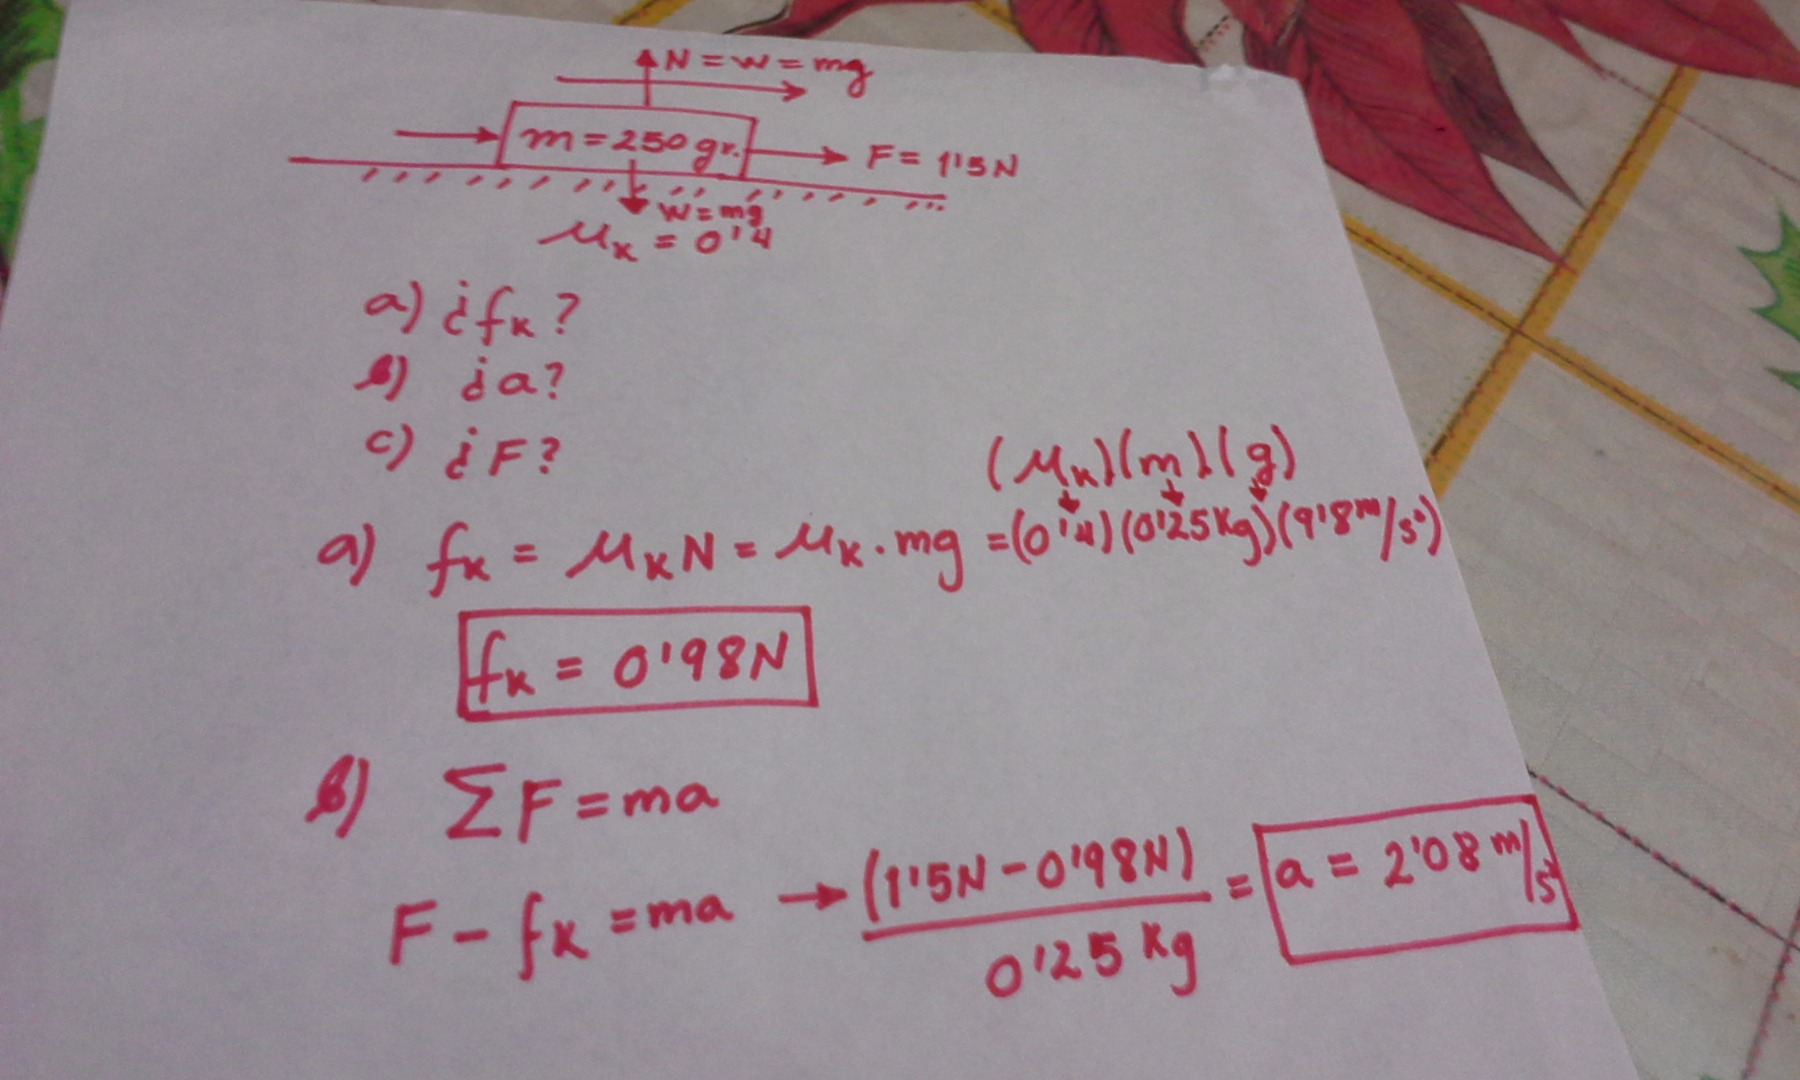 N = w = mg
m = 250 gr.
F = 1'5 N
w = mg
μk = 0'4
a) ¿fk?
b) ¿a?
c) ¿F?
(μk)(m)(g)
a) fk = μk N = μk · mg = (0'4)(0'25 Kg)(9'8 m/s²)
fk = 0'98 N
b) ΣF = ma
F - fk = ma → (1'5 N - 0'98 N) / 0'25 Kg = a = 2'08 m/s²